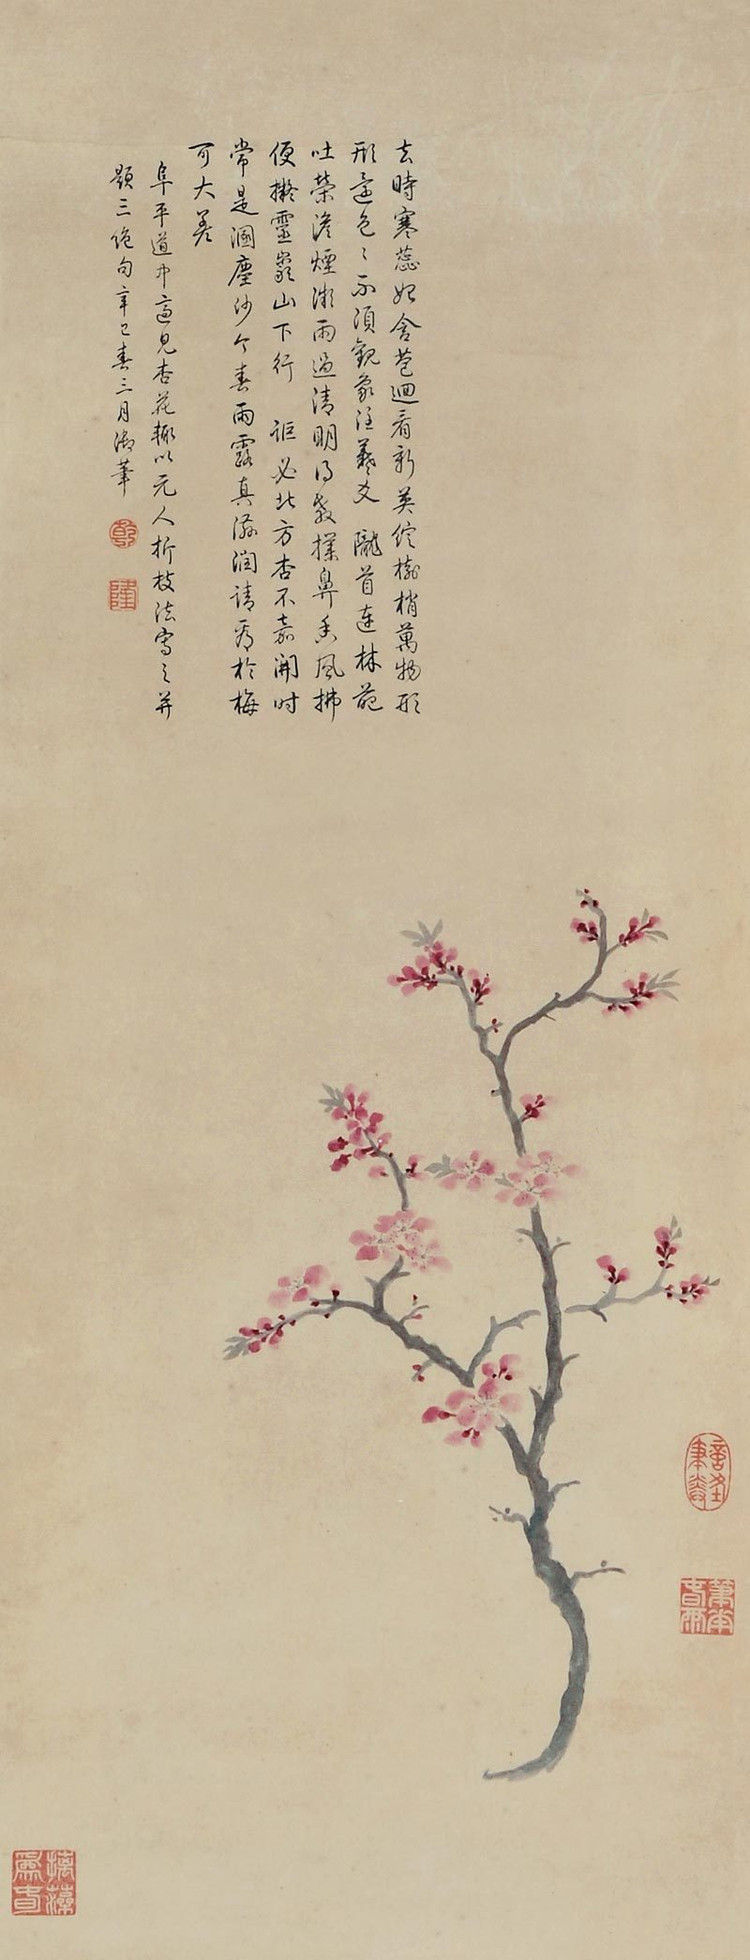 去時寒蕊始含苞迴看新英綻樹梢萬物形
形還色〻不須觀象注羲爻 隴首連林葩
吐榮澹煙微雨過清明得教撲鼻香風拂
便擬靈巖山下行 詎必北方杏不嘉開時
常是涸塵沙今春雨露真滋潤請看於梅
可大差
阜平道中適見杏花輒以元人折枝法寫之并
題三絕句辛巳春三月御筆
乾
隆